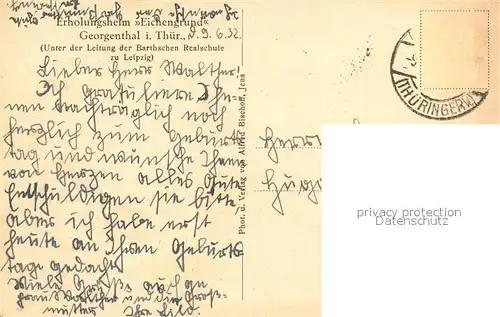 Erholungsheim »Eichengrund«
Georgenthal i. Thür., d. 9.6.32.
(Unter der Leitung der Barthschen Realschule
zu Leipzig)
Lieber Herr Walther!
Ich gratuliere Ih-
nen nachträglich noch
herzlich zum Geburts
tag und wünsche Ihnen
von Herzen alles Gute
Entschuldigen sie bitte
aber ich habe erst
heute an Ihren Geburts
tage gedacht
Viele Grüße auch an
Frau Walther und die Groß=
mutter Ihre
Phot. u. Verlag von Alfred Bischoff, Jena
(THÜRINGERW
Herrn
Hugo
privacy protection
Datenschutz